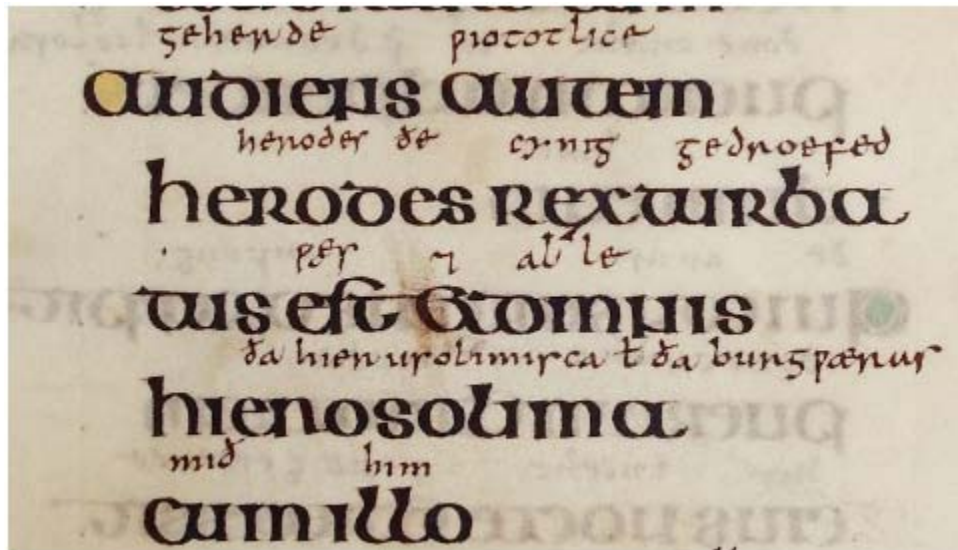 geherde ƿiototlice
audiens autem
herodes ðe cynig gedroefed
herodes rex turba
ƿæs ⁊ alle
tus est et omnis
ða hierusolimisca ł ða burugƿæras
hierosolima
mið him
cum illo